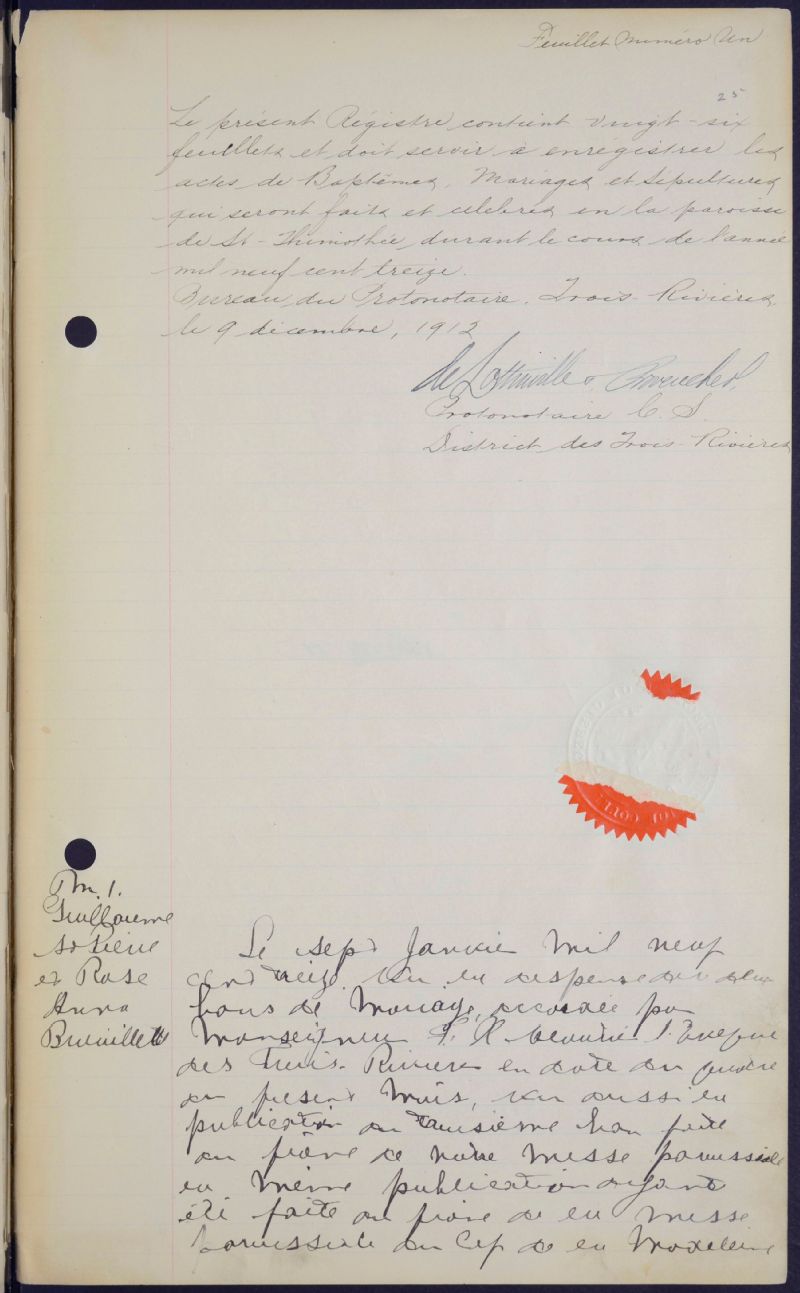 Feuillet Numéro Un
25
Le présent Régistre contient vingt-six
feuillets et doit servir à enregistrer les
actes de Baptêmes, Mariages et Sépultures
qui seront faits et célébrés en la paroisse
de St-Thimothée durant le cours de l'année
mil neuf cent treize.
Bureau du Protonotaire. Trois-Rivières,
le 9 décembre, 1912
de Lottinville &
Protonotaire C. S.
District des Trois-Rivières
M. 1.
Guillaume
St Pierre
et Rose
Anna
Brouillette
Le sept Janvier mil neuf
cent treize. Vu la dispense de deux
bans de mariage, accordée par
Monseigneur F. X. Cloutier l'Evêque
des Trois-Rivières en date du quatre
du présent mois, vu aussi la
publication du troisième ban faite
au prône de notre messe paroissiale
la même publication ayant
été faite au prône de la messe
paroissiale du Cap de la Madeleine